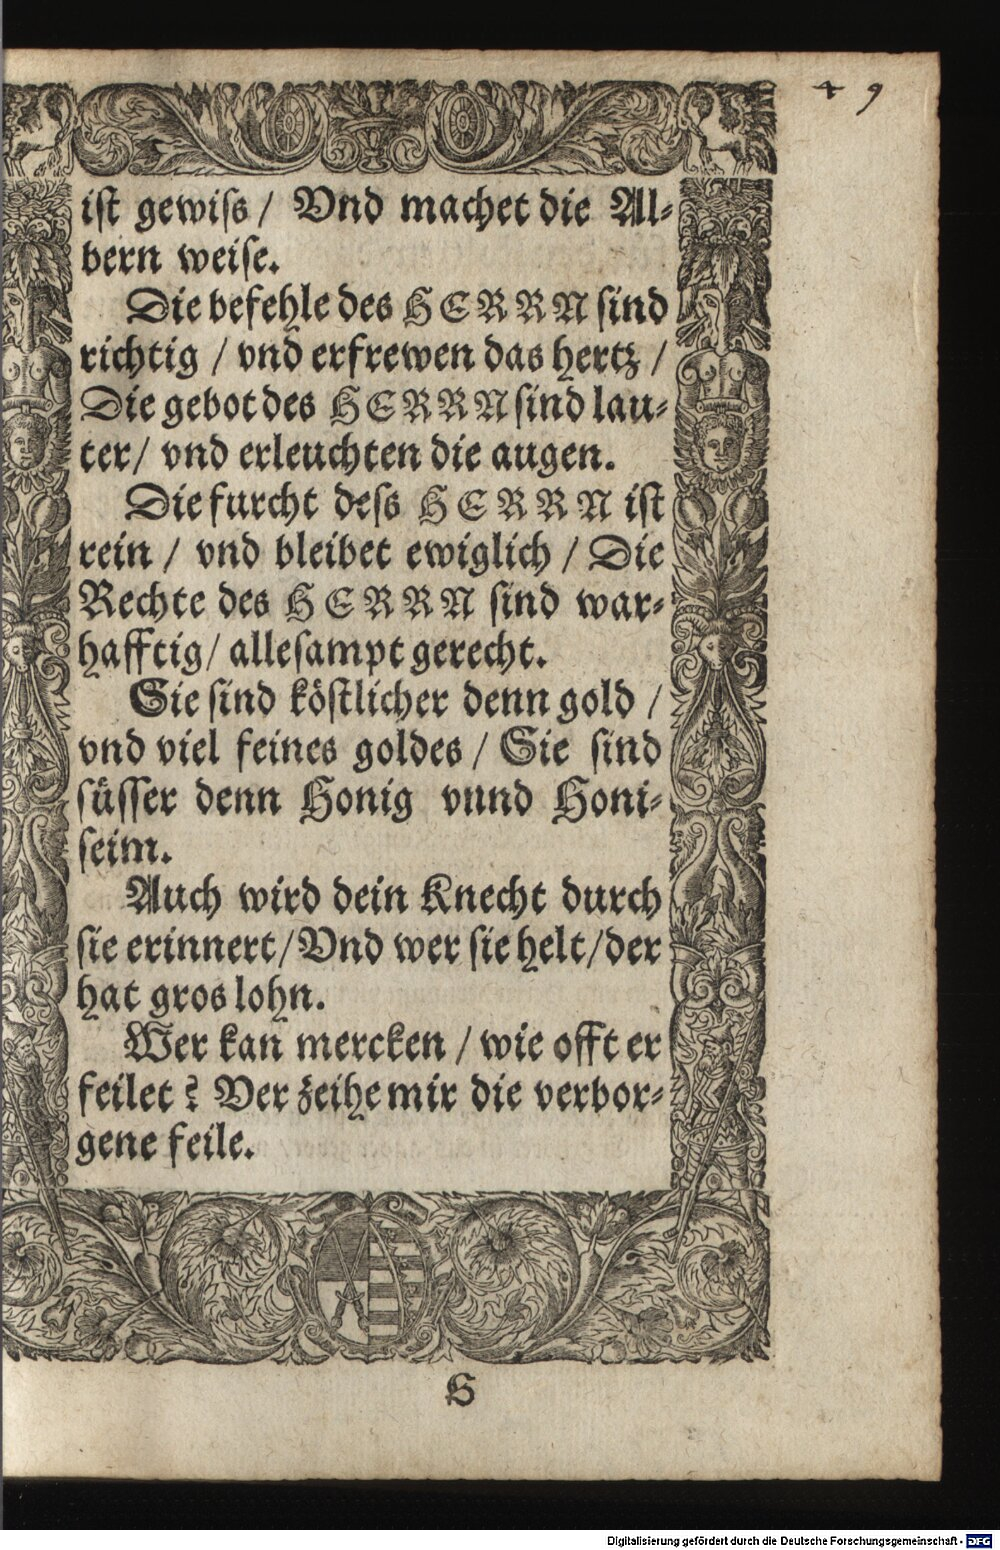 4 9
ist gewiſs / Vnd machet die Al⸗
bern weiſe.
Die befehle des HERRN ſind
richtig / vnd erfrewen das hertz /
Die gebot des HERRN ſind lau⸗
ter / vnd erleuchten die augen.
Die furcht deſs HERRN iſt
rein / vnd bleibet ewiglich / Die
Rechte des HERRN ſind war⸗
hafftig / alleſampt gerecht.
Sie ſind köſtlicher denn gold /
vnd viel feines goldes / Sie ſind
ſüſſer denn Honig vnnd Honi⸗
ſeim.
Auch wird dein Knecht durch
ſie erinnert / Vnd wer ſie helt / der
hat gros lohn.
Wer kan mercken / wie offt er
feilet? Verzeihe mir die verbor⸗
gene feile.
S
Digitalisierung gefördert durch die Deutsche Forschungsgemeinschaft - DFG